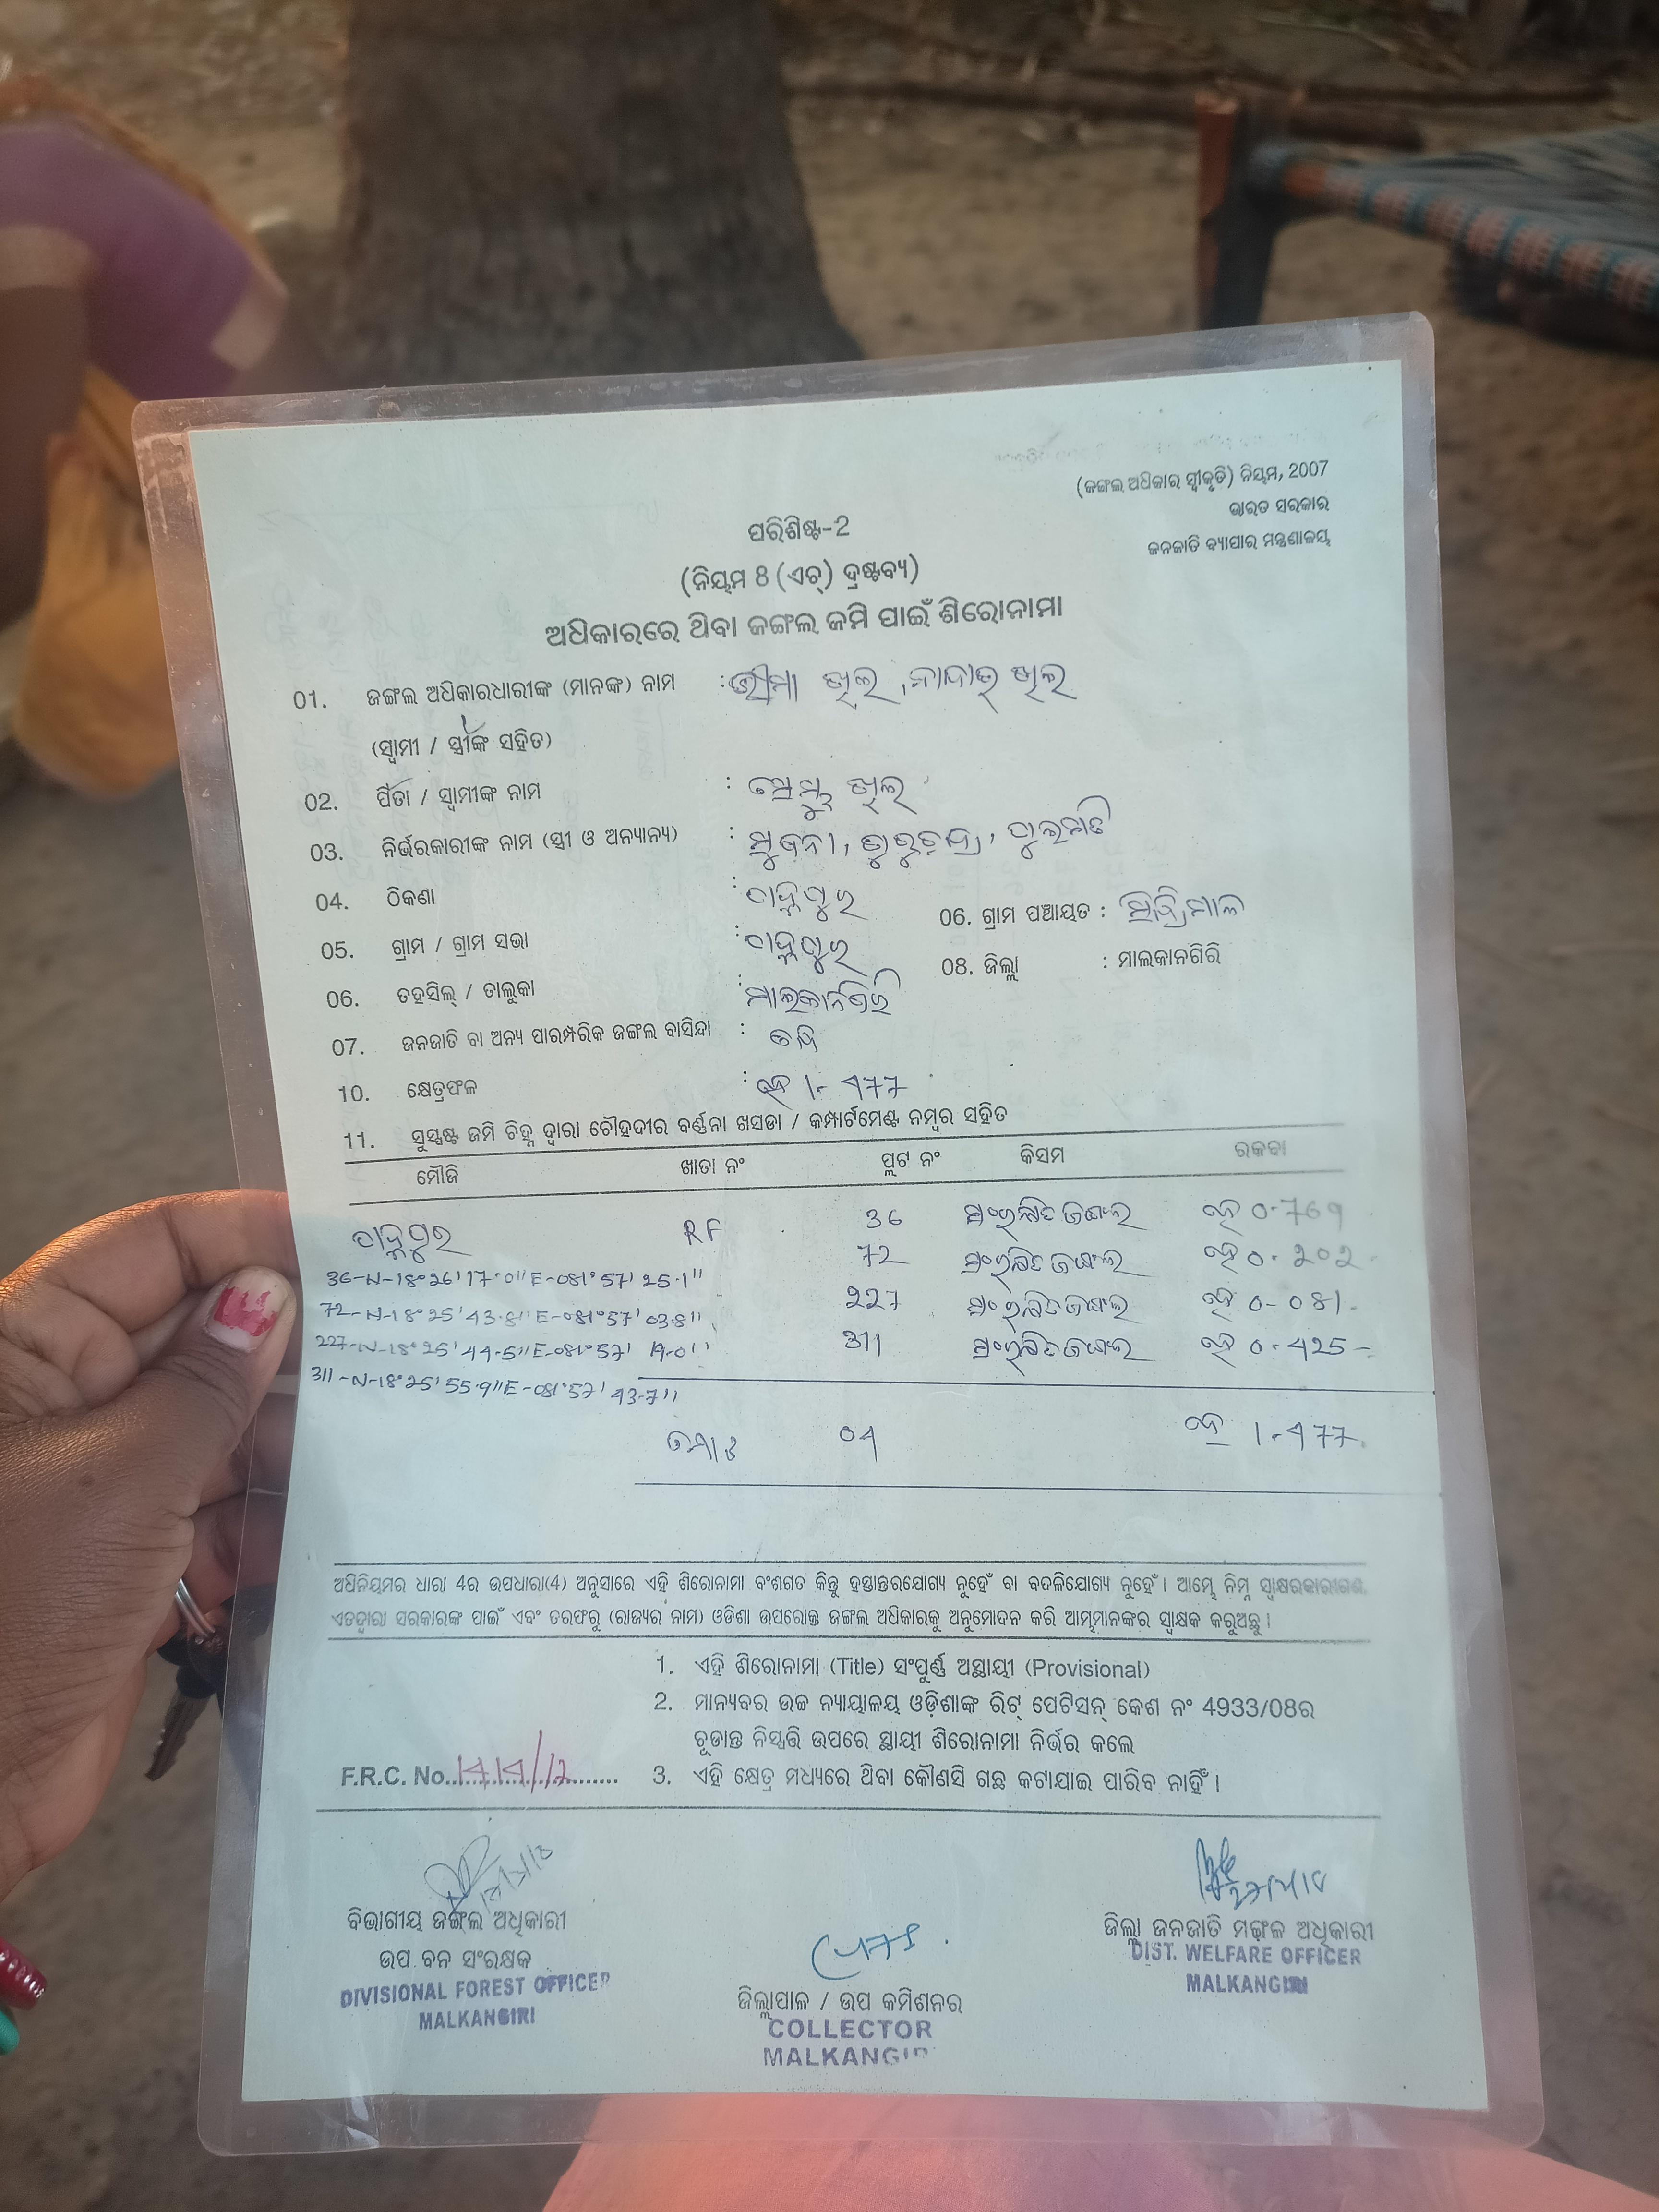 (ଜଙ୍ଗଲ ଅଧିକାର ସ୍ୱୀକୃତି) ନିୟମ, 2007
ଭାରତ ସରକାର
ଜନଜାତି ବ୍ୟାପାର ମନ୍ତ୍ରଣାଳୟ
ପରିଶିଷ୍ଟ-2
(ନିୟମ 8 (ଏଚ୍) ଦ୍ରଷ୍ଟବ୍ୟ)
ଅଧିକାରରେ ଥିବା ଜଙ୍ଗଲ ଜମି ପାଇଁ ଶିରୋନାମା
01. ଜଙ୍ଗଲ ଅଧିକାରଧାରୀଙ୍କ (ମାନଙ୍କ) ନାମ : ଖିଲ, ଖିଲ
(ସ୍ୱାମୀ / ସ୍ତ୍ରୀଙ୍କ ସହିତ)
02. ପିତା / ସ୍ୱାମୀଙ୍କ ନାମ : ଖିଲ
03. ନିର୍ଭରକାରୀଙ୍କ ନାମ (ସ୍ତ୍ରୀ ଓ ଅନ୍ୟାନ୍ୟ) :
04. ଠିକଣା :
05. ଗ୍ରାମ / ଗ୍ରାମ ସଭା : 06. ଗ୍ରାମ ପଞ୍ଚାୟତ :
06. ତହସିଲ୍ / ତାଲୁକା : ମାଲକାନଗିରି 08. ଜିଲ୍ଲା : ମାଲକାନଗିରି
07. ଜନଜାତି ବା ଅନ୍ୟ ପାରମ୍ପରିକ ଜଙ୍ଗଲ ବାସିନ୍ଦା :
10. କ୍ଷେତ୍ରଫଳ : ହେ 1-477
11. ସୁସ୍ପଷ୍ଟ ଜମି ଚିହ୍ନ ଦ୍ୱାରା ଚୌହଦୀର ବର୍ଣ୍ଣନା ଖସଡା / କମ୍ପାର୍ଟମେଣ୍ଟ ନମ୍ବର ସହିତ
ମୌଜି ଖାତା ନଂ ପ୍ଲଟ ନଂ କିସମ ରକବା
RF 36 ସଂରକ୍ଷିତ ଜଙ୍ଗଲ ହେ 0.769
36-N-18°26'17.0" E-081°57'25.1"
72 ସଂରକ୍ଷିତ ଜଙ୍ଗଲ ହେ 0.202
72-N-18°25'43.8" E-081°57'03.8"
227 ସଂରକ୍ଷିତ ଜଙ୍ଗଲ ହେ 0-081
227-N-18°25'44.5" E-081°57'19.0"
311 ସଂରକ୍ଷିତ ଜଙ୍ଗଲ ହେ 0.425
311-N-18°25'55.9" E-081°57'43.7"
ମୋଟ 04 ହେ 1.477
ଅଧିନିୟମର ଧାରା 4ର ଉପଧାରା(4) ଅନୁସାରେ ଏହି ଶିରୋନାମା ବଂଶଗତ କିନ୍ତୁ ହସ୍ତାନ୍ତରଯୋଗ୍ୟ ନୁହେଁ ବା ବଦଳିଯୋଗ୍ୟ ନୁହେଁ । ଆମ୍ଭେ ନିମ୍ନ ସ୍ୱାକ୍ଷରକାରୀଗଣ
ଏତଦ୍ୱାରା ସରକାରଙ୍କ ପାଇଁ ଏବଂ ତରଫରୁ (ରାଜ୍ୟର ନାମ) ଓଡିଶା ଉପରୋକ୍ତ ଜଙ୍ଗଲ ଅଧିକାରକୁ ଅନୁମୋଦନ କରି ଆମ୍ଭମାନଙ୍କର ସ୍ୱାକ୍ଷକ କରୁଅଛୁ ।
1. ଏହି ଶିରୋନାମା (Title) ସଂପୂର୍ଣ୍ଣ ଅସ୍ଥାୟୀ (Provisional)
2. ମାନ୍ୟବର ଉଚ୍ଚ ନ୍ୟାୟାଳୟ ଓଡ଼ିଶାଙ୍କ ରିଟ୍ ପେଟିସନ୍ କେଶ ନଂ 4933/08ର
ଚୂଡାନ୍ତ ନିଷ୍ପତ୍ତି ଉପରେ ସ୍ଥାୟୀ ଶିରୋନାମା ନିର୍ଭର କଲେ
3. ଏହି କ୍ଷେତ୍ର ମଧ୍ୟରେ ଥିବା କୌଣସି ଗଛ କଟାଯାଇ ପାରିବ ନାହିଁ ।
F.R.C. No. 1414/12
ବିଭାଗୀୟ ଜଙ୍ଗଲ ଅଧିକାରୀ
ଉପ ବନ ସଂରକ୍ଷକ
DIVISIONAL FOREST OFFICER
MALKANGIRI
ଜିଲ୍ଲାପାଳ / ଉପ କମିଶନର
COLLECTOR
MALKANGIRI
ଜିଲ୍ଲା ଜନଜାତି ମଙ୍ଗଳ ଅଧିକାରୀ
DIST. WELFARE OFFICER
MALKANGIRI